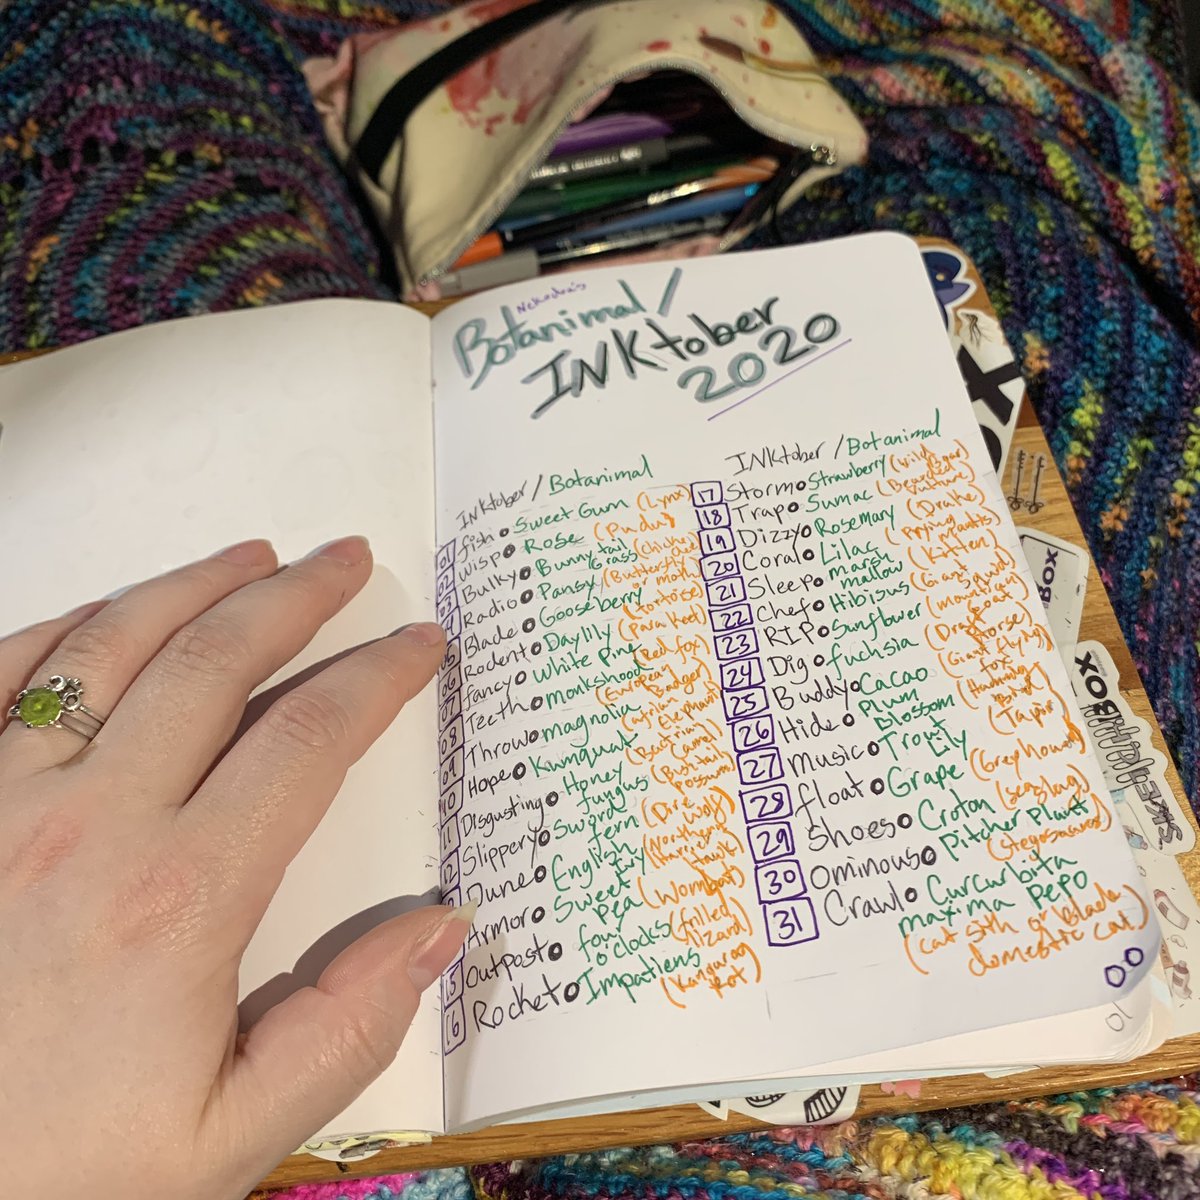 Nekodra's
Botanimal/
INKtober
2020
INKtober / Botanimal
01 fish • Sweet Gum (Lynx)
02 Wisp • Rose (Pudu)
03 Bulky • Bunny tail Grass (Chickadee)
04 Radio • Pansy (Butterfly or moth)
05 Blade • Gooseberry (tortoise)
06 Rodent • Daylily (Parakeet)
07 fancy • White Pine (Red fox)
08 Teeth • monkshood (European Badger)
09 Throw • magnolia (African Elephant)
10 Hope • Kumquat (Bactrian Camel)
11 Disgusting • Honey fungus (Bushtail Possum)
12 Slippery • Sword fern (Dire Wolf)
Dune • English Ivy (Northern Harrier Hawk)
Armor • Sweet Pea (Wombat)
15 Outpost • four o'clocks (frilled lizard)
16 Rocket • Impatiens (Kangaroo Rat)
INKtober / Botanimal
17 Storm • Strawberry (Wild Boar)
18 Trap • Sumac (Bearded Vulture)
19 Dizzy • Rosemary (Drake)
20 Coral • Lilac (Praying mantis)
21 Sleep • marsh mallow (Kitten)
22 Chef • Hibisus (Giant Squid)
23 RIP • Sunflower (mountain Goat)
24 Dig • fuchsia (Draft Horse)
25 Buddy • Cacao (Giant flying fox)
26 Hide • Plum Blossom
27 Music • Trout Lily (Tapir)
28 float • Grape (Greyhound)
29 Shoes • Croton (sea slug)
30 Ominous • Pitcher Plant (stegosaurus)
31 Crawl • Curcurbita maxima Pepo
(cat sith or black
domestic cat)
00
01
BOX
BOX